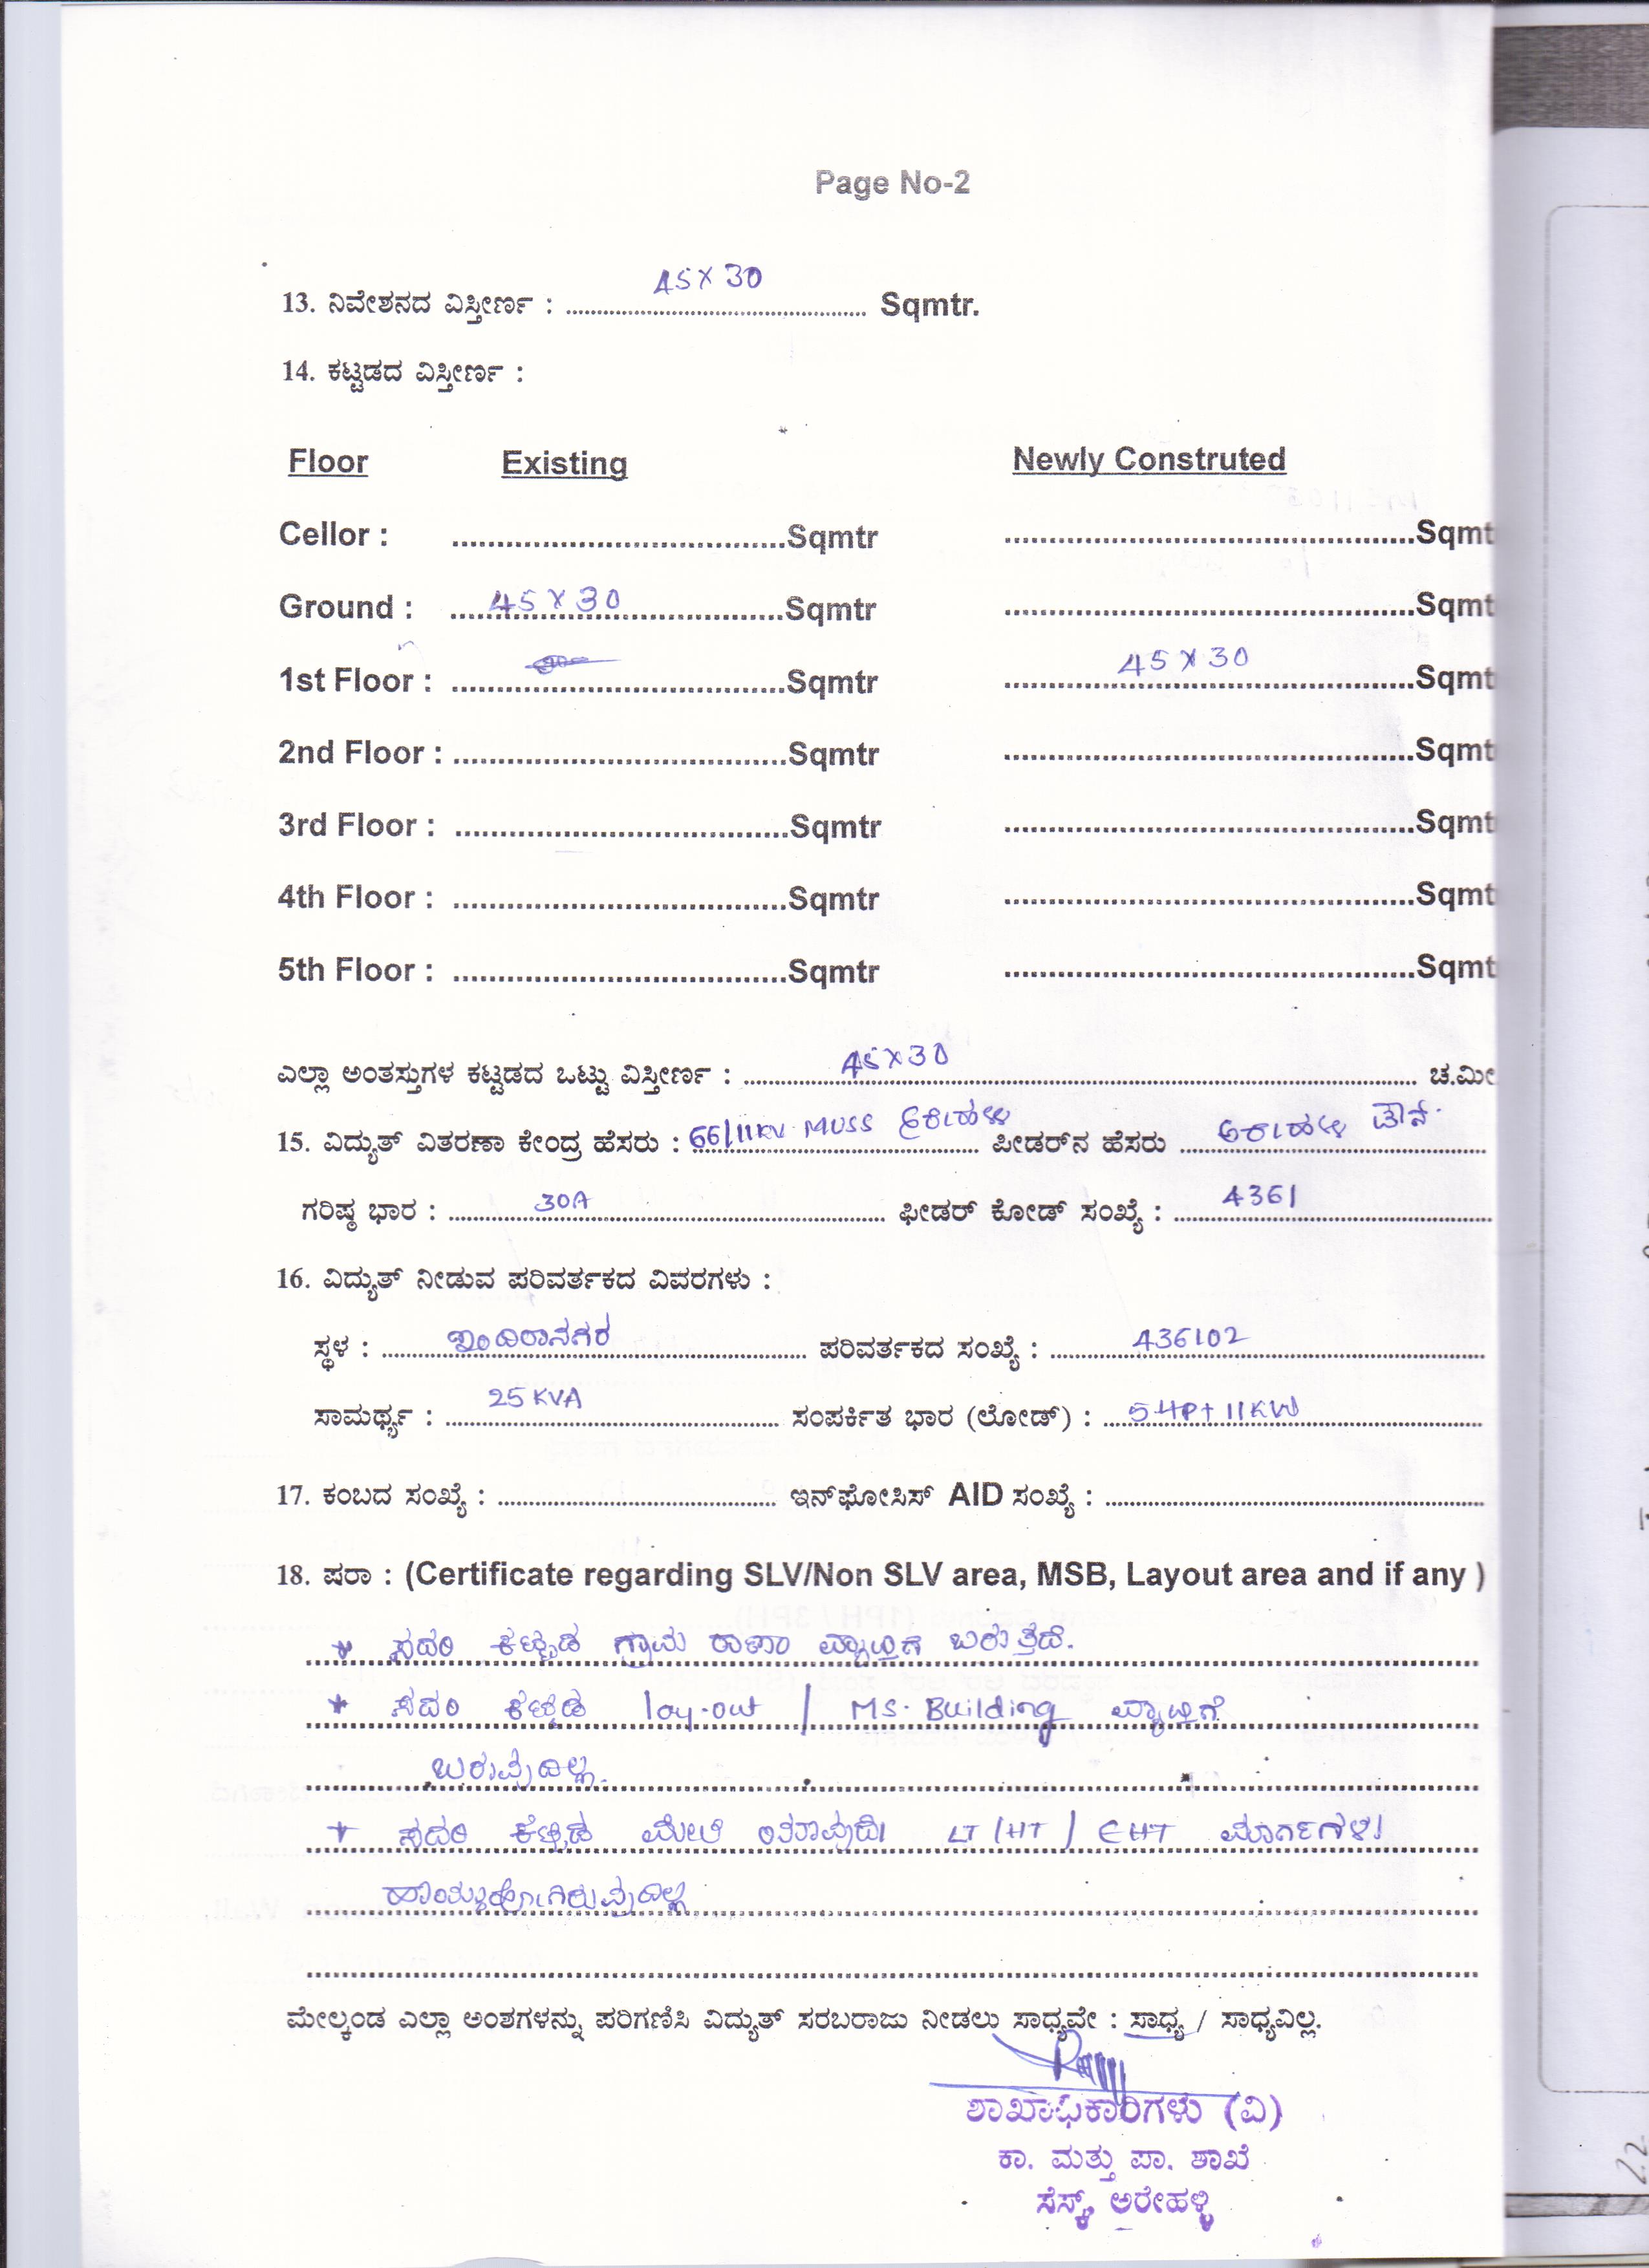 Page No-2
13. ನಿವೇಶನದ ವಿಸ್ತೀರ್ಣ : 45 X 30 Sqmtr.
14. ಕಟ್ಟಡದ ವಿಸ್ತೀರ್ಣ :
Floor Existing Newly Construted
Cellor : Sqmtr Sqmt
Ground : 45 X 30 Sqmtr Sqmt
1st Floor : Sqmtr 45 X 30 Sqmt
2nd Floor : Sqmtr Sqmt
3rd Floor : Sqmtr Sqmt
4th Floor : Sqmtr Sqmt
5th Floor : Sqmtr Sqmt
ಎಲ್ಲಾ ಅಂತಸ್ತುಗಳ ಕಟ್ಟಡದ ಒಟ್ಟು ವಿಸ್ತೀರ್ಣ : 45 X 30 ಚ.ಮೀ
15. ವಿದ್ಯುತ್ ವಿತರಣಾ ಕೇಂದ್ರ ಹೆಸರು : 66/11KV MUSS ಅರೇಹಳ್ಳಿ ಪೀಡರ್‌ನ ಹೆಸರು ಅರೇಹಳ್ಳಿ ಟೌನ್
ಗರಿಷ್ಠ ಭಾರ : 30A ಫೀಡರ್ ಕೋಡ್ ಸಂಖ್ಯೆ : 4361
16. ವಿದ್ಯುತ್ ನೀಡುವ ಪರಿವರ್ತಕದ ವಿವರಗಳು :
ಸ್ಥಳ : ಇಂದಿರಾನಗರ ಪರಿವರ್ತಕದ ಸಂಖ್ಯೆ : 436102
ಸಾಮರ್ಥ್ಯ : 25 KVA ಸಂಪರ್ಕಿತ ಭಾರ (ಲೋಡ್) : 5 HP + 11KW
17. ಕಂಬದ ಸಂಖ್ಯೆ : ಇನ್‌ಫೋಸಿಸ್ AID ಸಂಖ್ಯೆ :
18. ಷರಾ : (Certificate regarding SLV/Non SLV area, MSB, Layout area and if any )
* ಸದರಿ ಕಟ್ಟಡ ಗ್ರಾಮ ಠಾಣಾ ವ್ಯಾಪ್ತಿಗೆ ಬರುತ್ತದೆ.
* ಸದರಿ ಕಟ್ಟಡ lay-out / MS. Building ವ್ಯಾಪ್ತಿಗೆ
ಬರುವುದಿಲ್ಲ.
* ಸದರಿ ಕಟ್ಟಡ ಮೇಲೆ ಯಾವುದೇ LT / HT / EHT ಮಾರ್ಗಗಳು
ಹಾಯ್ದುಹೋಗಿರುವುದಿಲ್ಲ
ಮೇಲ್ಕಂಡ ಎಲ್ಲಾ ಅಂಶಗಳನ್ನು ಪರಿಗಣಿಸಿ ವಿದ್ಯುತ್ ಸರಬರಾಜು ನೀಡಲು ಸಾಧ್ಯವೇ : ಸಾಧ್ಯ / ಸಾಧ್ಯವಿಲ್ಲ.
ಶಾಖಾಧಿಕಾರಿಗಳು (ವಿ)
ಕಾ. ಮತ್ತು ಪಾ. ಶಾಖೆ
ಸೆಸ್ಕ್, ಅರೇಹಳ್ಳಿ